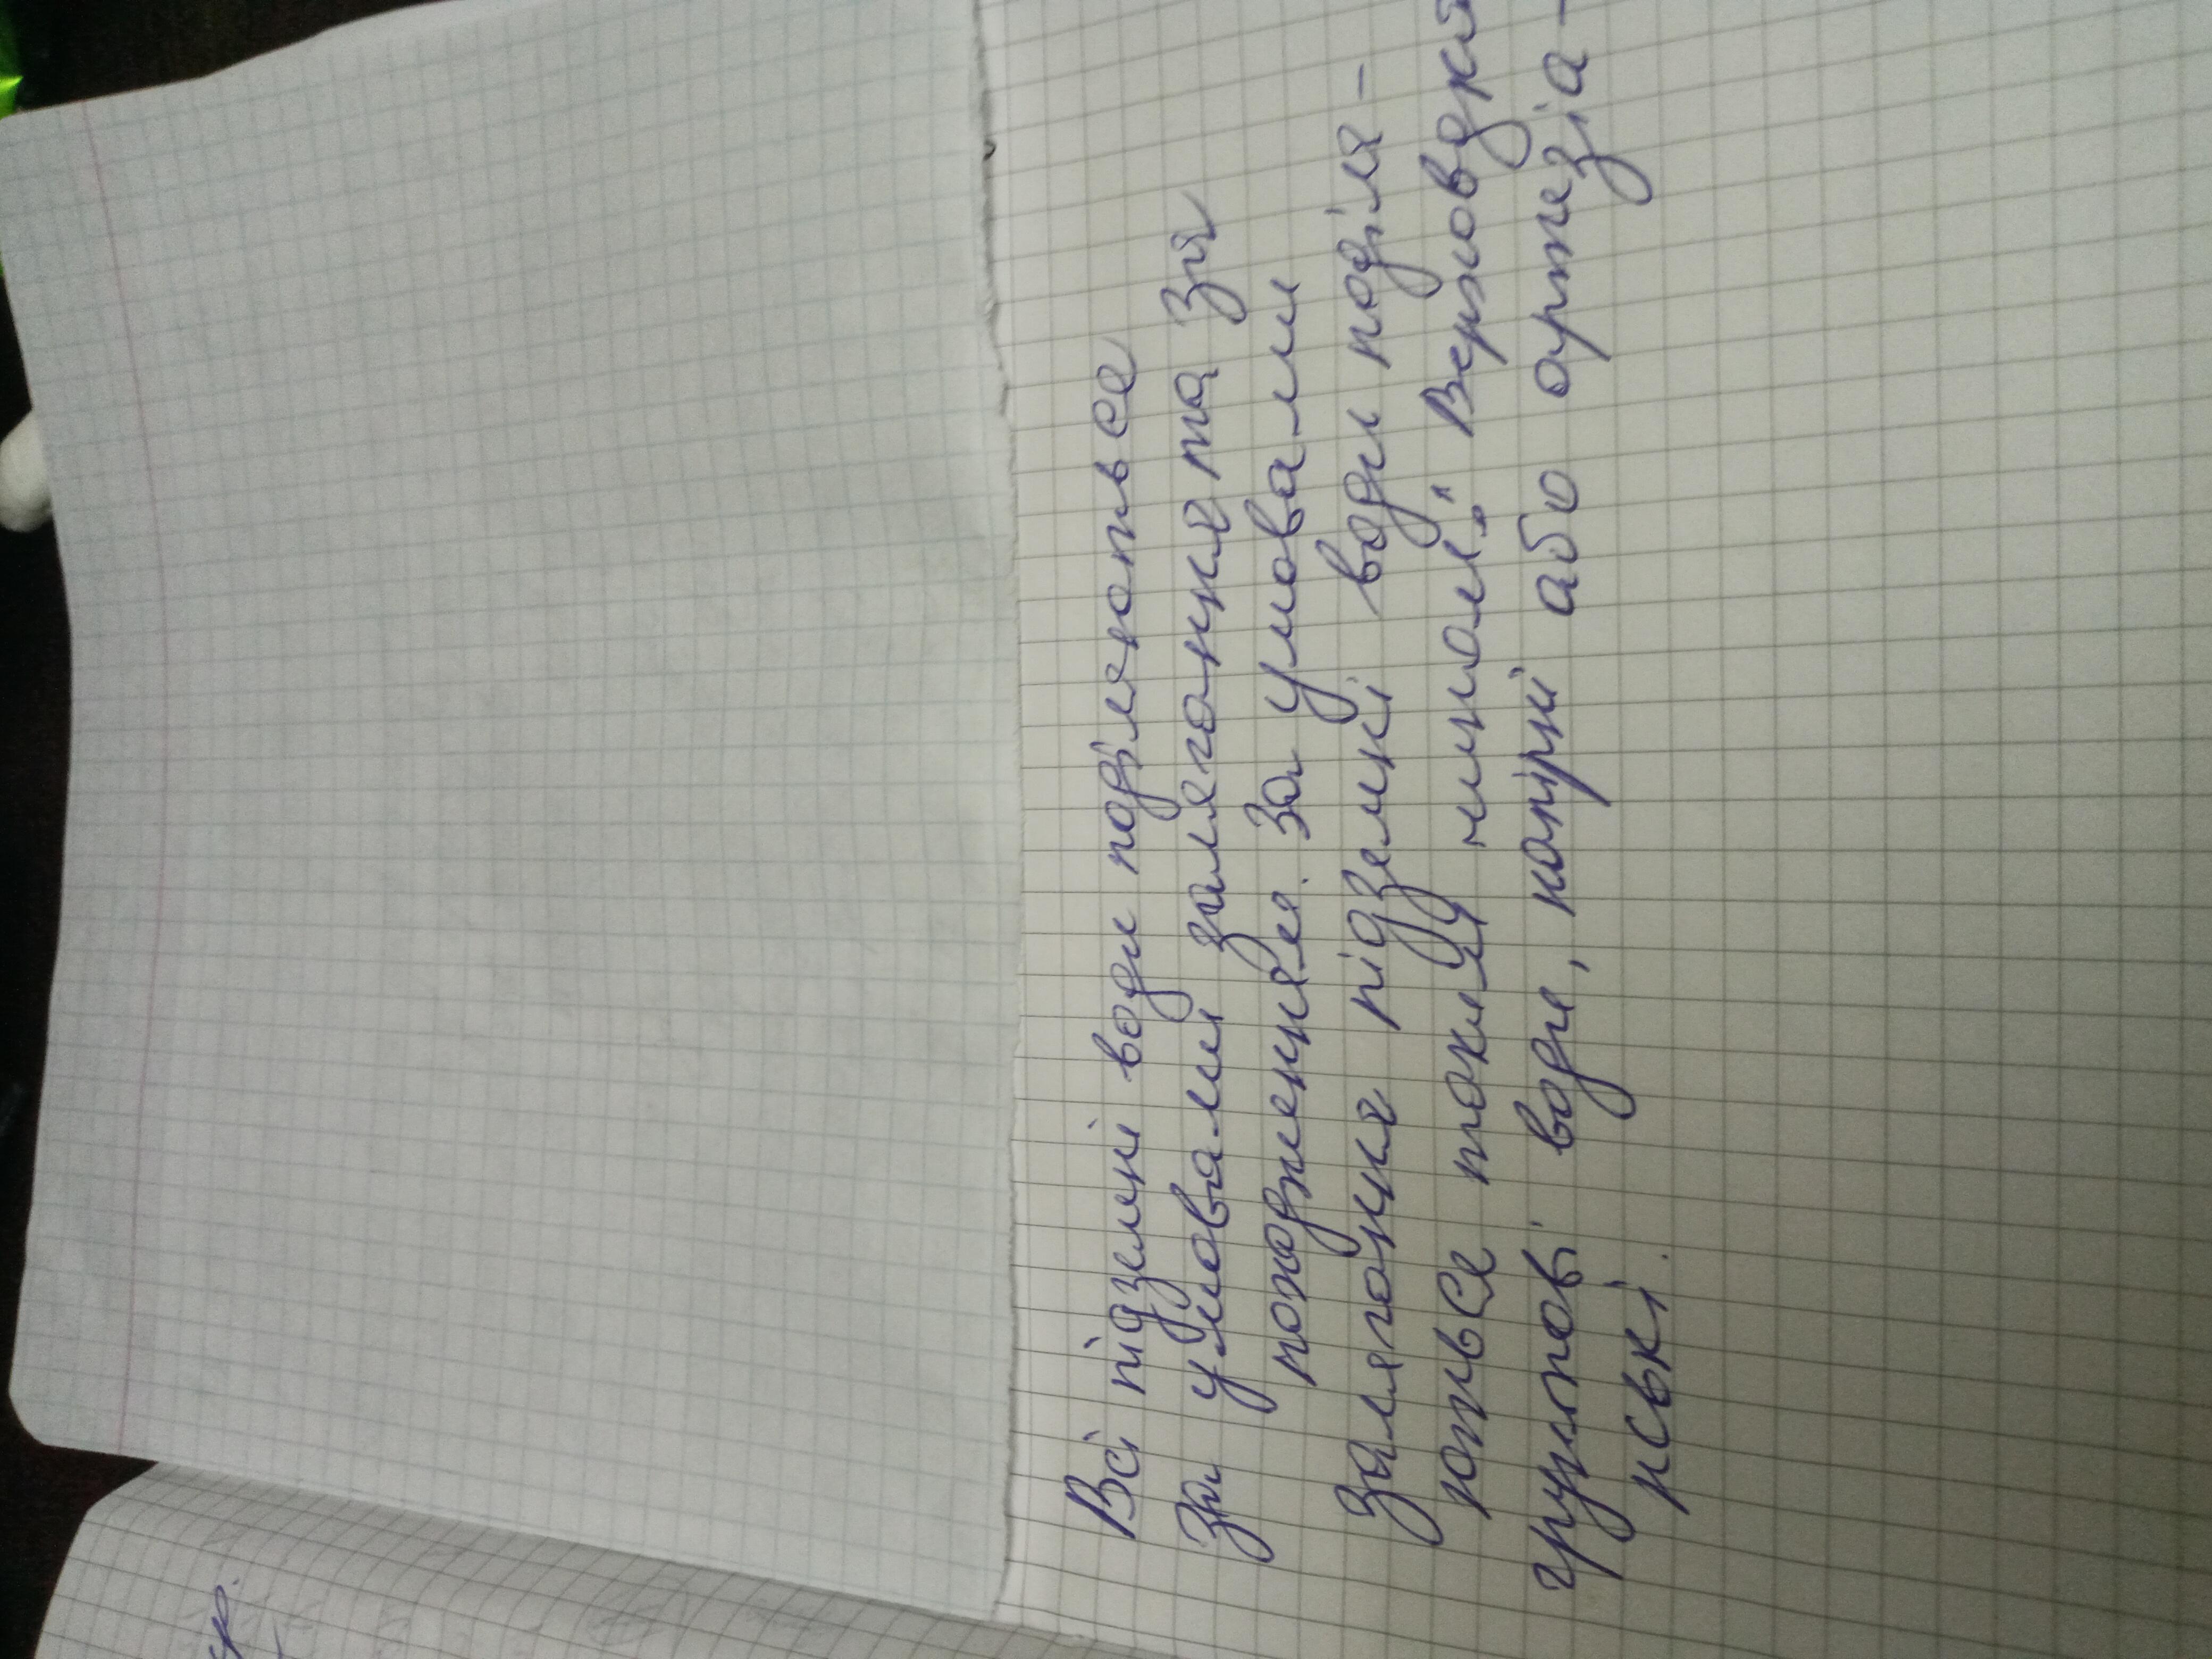 Всі підземні води поділяються
За умовами залягання та за
походженням. За умовами
залягання підземні води поділя-
ються таким чином: "Верховодка
грунтові води, напірні або артезіа-
нські.